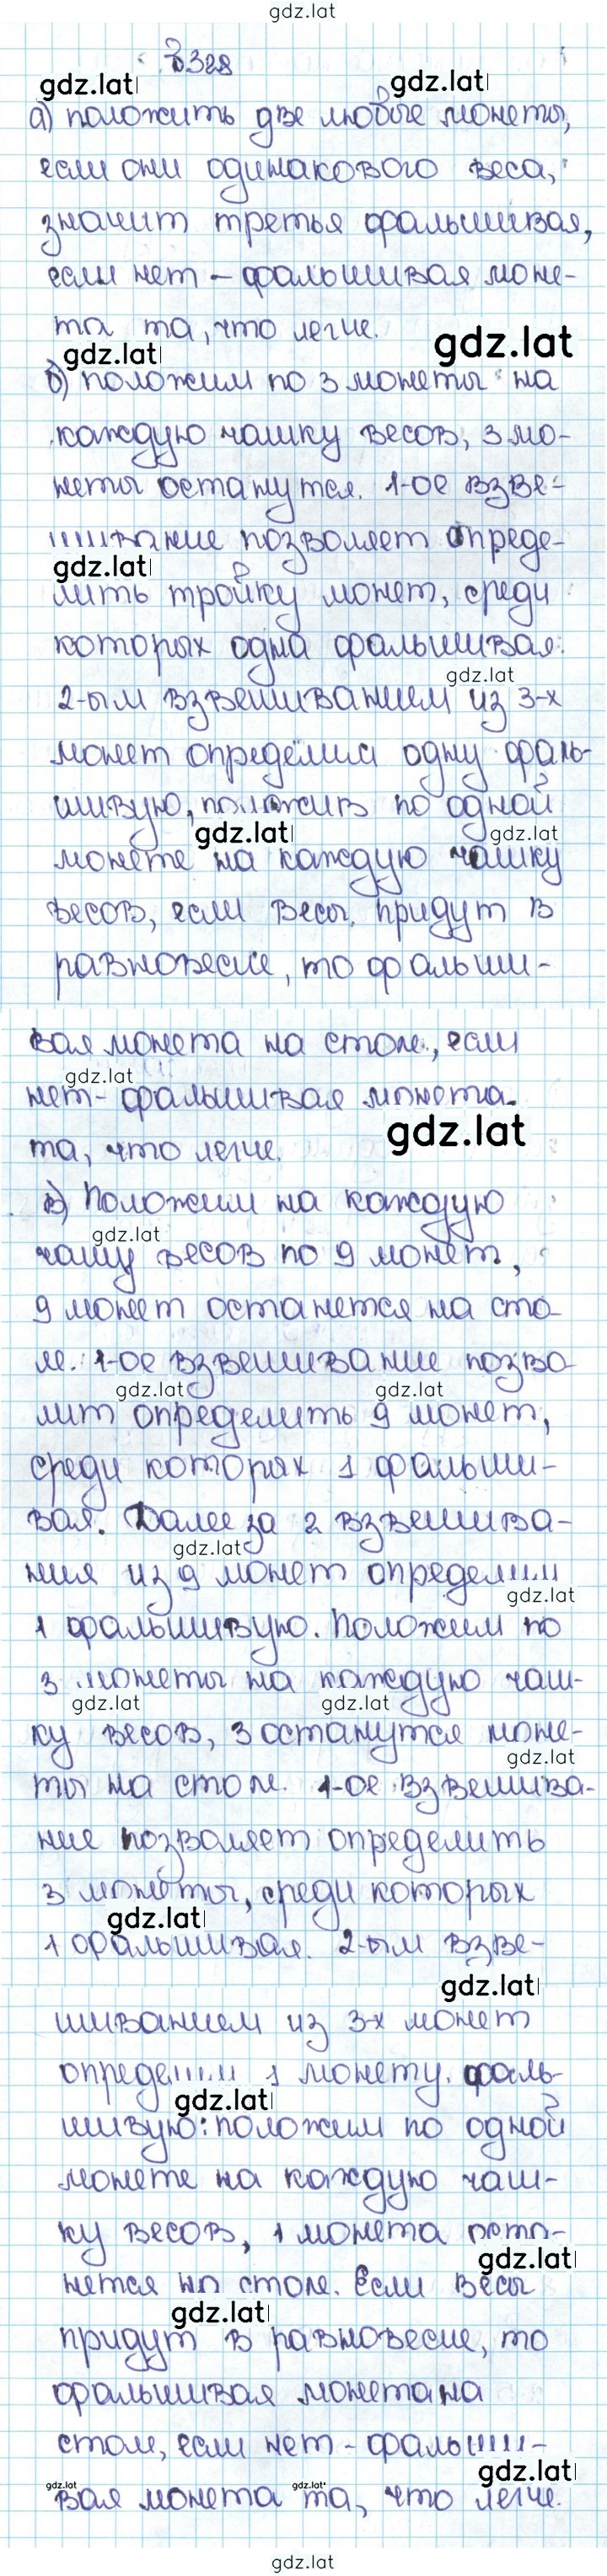 gdz.lat
328
gdz.lat
gdz.lat
а) положить две любые монеты,
если они одинакового веса,
значит третья фальшивая,
если нет – фальшивая моне-
та та, что легче.
gdz.lat
gdz.lat
б) положим по 3 монеты на
каждую чашку весов, 3 мо-
неты останутся. 1-ое взве-
шивание позволяет опреде-
gdz.lat
лить тройку монет, среди
которых одна фальшивая.
gdz.lat
2-ым взвешиванием из 3-х
монет определим одну фаль-
шивую, положив по одной
gdz.lat
gdz.lat
монете на каждую чашку
весов, если весы придут в
равновесие, то фальши-
вая монета на столе, если
gdz.lat
нет – фальшивая монета
gdz.lat
та, что легче.
в) Положим на каждую
gdz.lat
чашу весов по 9 монет,
9 монет останется на сто-
ле. 1-ое взвешивание позво-
gdz.lat
gdz.lat
лит определить 9 монет,
среди которых 1 фальши-
вая. Далее за 2 взвешива-
gdz.lat
ния из 9 монет определим
gdz.lat
1 фальшивую. Положим по
3 монеты на каждую чаш-
gdz.lat
gdz.lat
ку весов, 3 останутся моне-
gdz.lat
ты на столе. 1-ое взвешива-
ние позволяет определить
3 монеты, среди которых
gdz.lat
1 фальшивая. 2-ым взве-
gdz.lat
шиванием из 3-х монет
определим 1 монету фаль-
gdz.lat
шивую: положим по одной
монете на каждую чаш-
ку весов, 1 монета оста-
gdz.lat
нется на столе. Если весы
gdz.lat
придут в равновесие, то
фальшивая монета на
столе, если нет – фальши-
gdz.lat
gdz.lat
gdz.lat
вая монета та, что легче.
gdz.lat